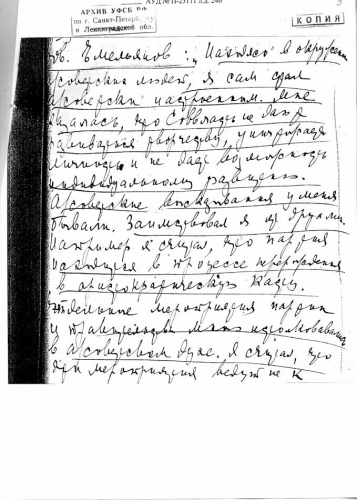 АРХИВ УФСБ РФ
по г. Санкт-Петерб. гу
и Ленинградской обл.
КОПИЯ
Емельянов: „Находясь в окружении
а/советских людей, я сам стал
а/советски настроенным. Мне
казалось, что Соввласть не дает
развиваться творчеству, уничтожает
личность и не дает возможность
индивидуальному развитию.
А/советские высказывания у меня
бывали. Заимствовал я их
например я считал, что партия
находится в процессе перерождения
в аристократическую касту.
Отдельные мероприятия партии
и правительства мною истолковывались
в а/советском духе. Я считал, что
эти мероприятия ведут не к